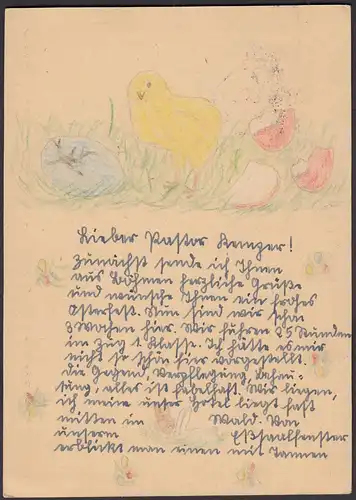 Lieber Pastor Kemper!
Zunächst sende ich Ihnen
aus Böhmen herzliche Grüße
und wünsche Ihnen ein frohes
Osterfest. Nun sind wir schon
3 Wochen hier. Wir fuhren 25 Stunden
im Zug 1. Klasse. Ich hätte es mir
nicht so schön hier vorgestellt.
Die Gegend, Verpflegung, Behau-
sung, alles ist fabelhaft. Wir liegen,
ich meine unser Hotel liegt fast
mitten im Wald. Von
unserm Eßsaalfenster
erblickt man einen mit Tannen